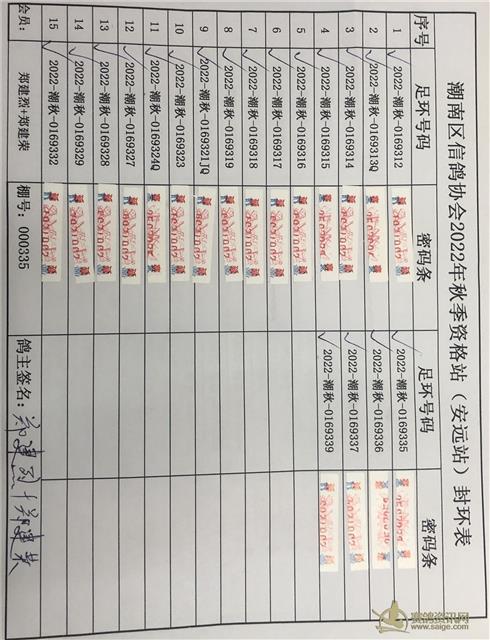 潮南区信鸽协会2022年秋季资格站（安远站）封环表
序号 足环号码 密码条 足环号码 密码条
1 2022-潮秋-0169312 2022-潮秋-0169335
2 2022-潮秋-0169313Q 2022-潮秋-0169336
3 2022-潮秋-0169314 2022-潮秋-0169337
4 2022-潮秋-0169315 2022-潮秋-0169339
5 2022-潮秋-0169316
6 2022-潮秋-0169317
7 2022-潮秋-0169318
8 2022-潮秋-0169319
9 2022-潮秋-0169321JQ
10 2022-潮秋-0169323
11 2022-潮秋-0169324Q
12 2022-潮秋-0169327
13 2022-潮秋-0169328
14 2022-潮秋-0169329
15 2022-潮秋-0169332
会员： 郑建烈+郑建荣 棚号：000335 鸽主签名：郑建烈+郑建荣
赛鸽资讯网
www.saige.com